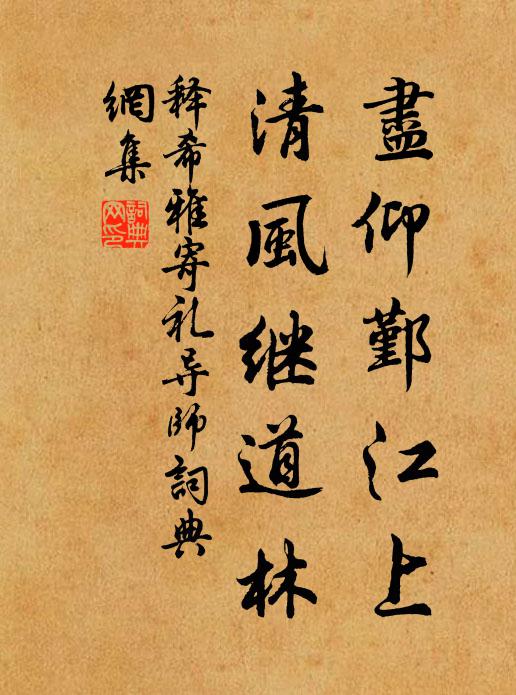 盡仰鄞江上
清風继道林
释希雅寄礼导师詞典
網集
詞典
网印